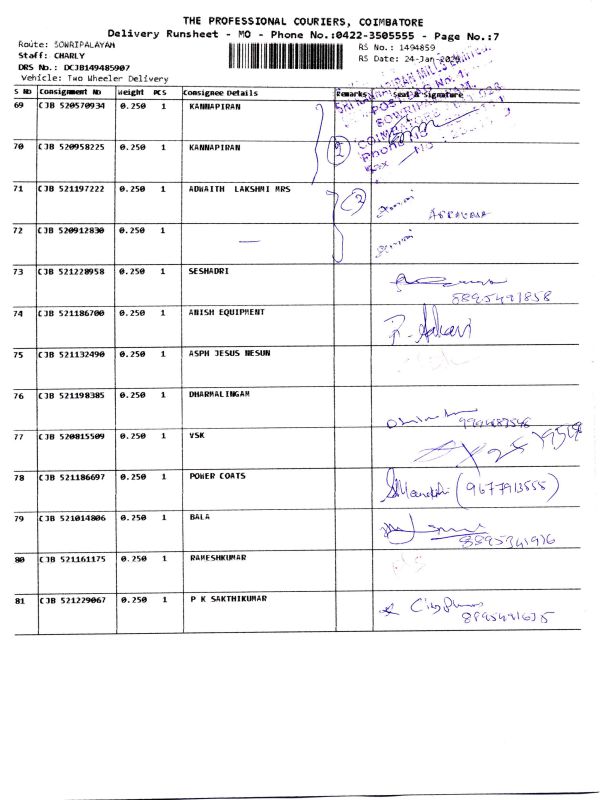 THE PROFESSIONAL COURIERS, COIMBATORE
Delivery Runsheet - MO - Phone No.:0422-3505555 - Page No.:7
Route: SOWRIPALAYAM
RS No.: 1494859
Staff: CHARLY
RS Date: 24-Jan-
DRS No.: DCJB149485907
Vehicle: Two Wheeler Delivery
S NO Consignment No Weight PCS Consignee Details Remarks Seal & Signature
69 CJB 520570934 0.250 1 KANNAPIRAN
70 CJB 520958225 0.250 1 KANNAPIRAN 2
71 CJB 521197222 0.250 1 ADWAITH LAKSHMI MRS 2
72 CJB 520912830 0.250 1 —
73 CJB 521228958 0.250 1 SESHADRI
8895491858
74 CJB 521186700 0.250 1 ANISH EQUIPMENT
75 CJB 521132490 0.250 1 ASPM JESUS NESUN
76 CJB 521198385 0.250 1 DHARMALINGAM
77 CJB 520815509 0.250 1 VSK
78 CJB 521186697 0.250 1 POWER COATS
(9677913555)
79 CJB 521014806 0.250 1 BALA
8895341916
80 CJB 521161175 0.250 1 RAMESHKUMAR
81 CJB 521229067 0.250 1 P K SAKTHIKUMAR